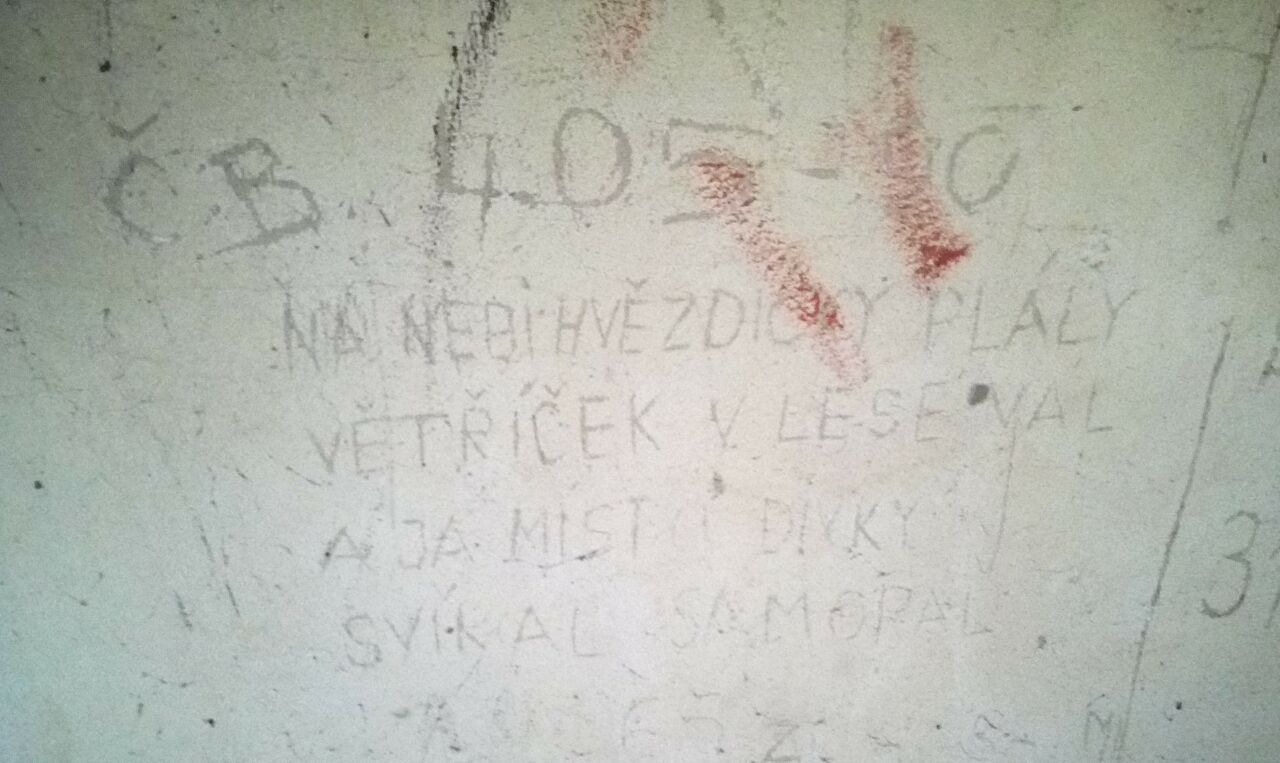 ČB 405-
NA NEBI HVĚZDIČKY PLÁLY
VĚTŘÍČEK V LESE VÁL
A JÁ MISTO DIVKY
SVÍKAL SAMOPAL